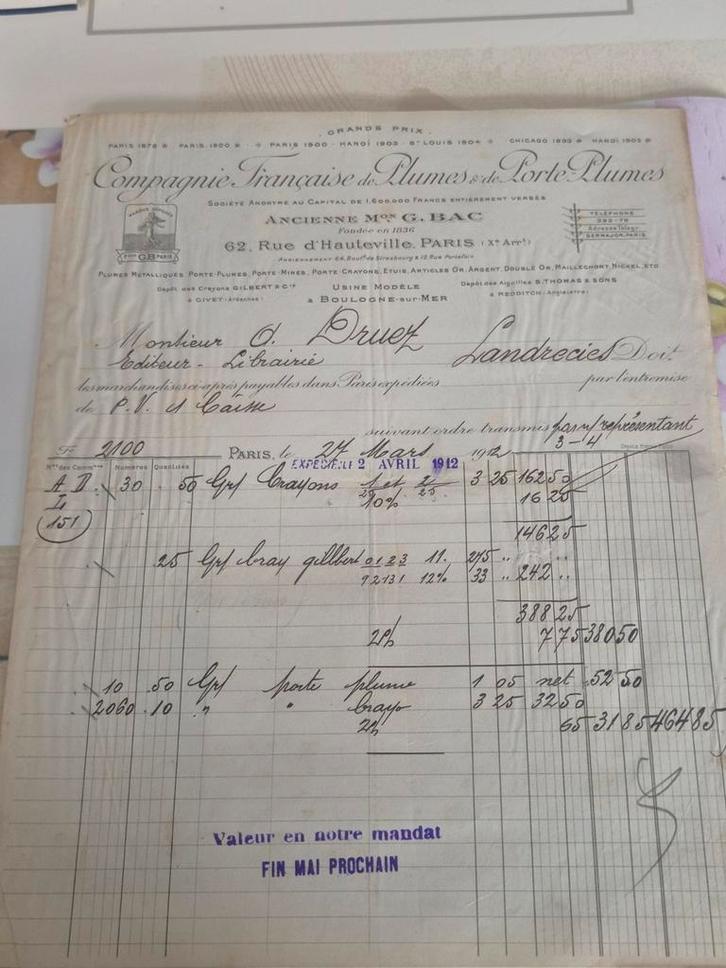 GRANDS PRIX
PARIS 1878 PARIS 1900 PARIS 1900 - HANOÏ 1903 - ST LOUIS 1904 CHICAGO 1893 HANOÏ 1903
Compagnie Française de Plumes & de Porte-Plumes
SOCIÉTÉ ANONYME AU CAPITAL DE 1.600.000 FRANCS ENTIÈREMENT VERSÉS
ANCIENNE MON G. BAC
Fondée en 1836
62, Rue d'Hauteville, PARIS (Xe Arrt)
TÉLÉPHONE
Adresse Télégr.
GERMAJOR-PARIS
GB PARIS
PLUMES MÉTALLIQUES, PORTE-PLUMES, PORTE-MINES, PORTE-CRAYONS, ETUIS, ARTICLES OR, ARGENT, DOUBLÉ OR, MAILLECHORT, NICKEL, ETC
Dépôt des Crayons GILBERT & Cie
à GIVET (Ardennes)
USINE MODÈLE
à BOULOGNE-SUR-MER
Dépôt des Aiguilles S. THOMAS & SONS
à REDDITCH (Angleterre)
Monsieur O. Druez
Editeur - Librairie
Landrecies Doit
les marchandises ci-après payables dans Paris expédiées par l'entremise
de P.V. d Caisse
suivant ordre transmis par n/ représentant
3-4
Fo 2100 PARIS, le 27 Mars 1912
EXPÉDIÉ LE 2 AVRIL 1912
Nos des Comms Numéros Quantités
A D 30 50 Grf Crayons 1 et 2 3 25 162 50
L 10% 16 25
151
146 25
25 Grf Cray gilbert 0 1 2 3 11. 275 ..
12% 33 .. 242 ..
388 25
2% 7 75 380 50
10 50 Grf porte plume 1 05 net 52 50
2060 10 " " Crayo 3 25 32 50
2% 65 31 85 464 85
Valeur en notre mandat
FIN MAI PROCHAIN